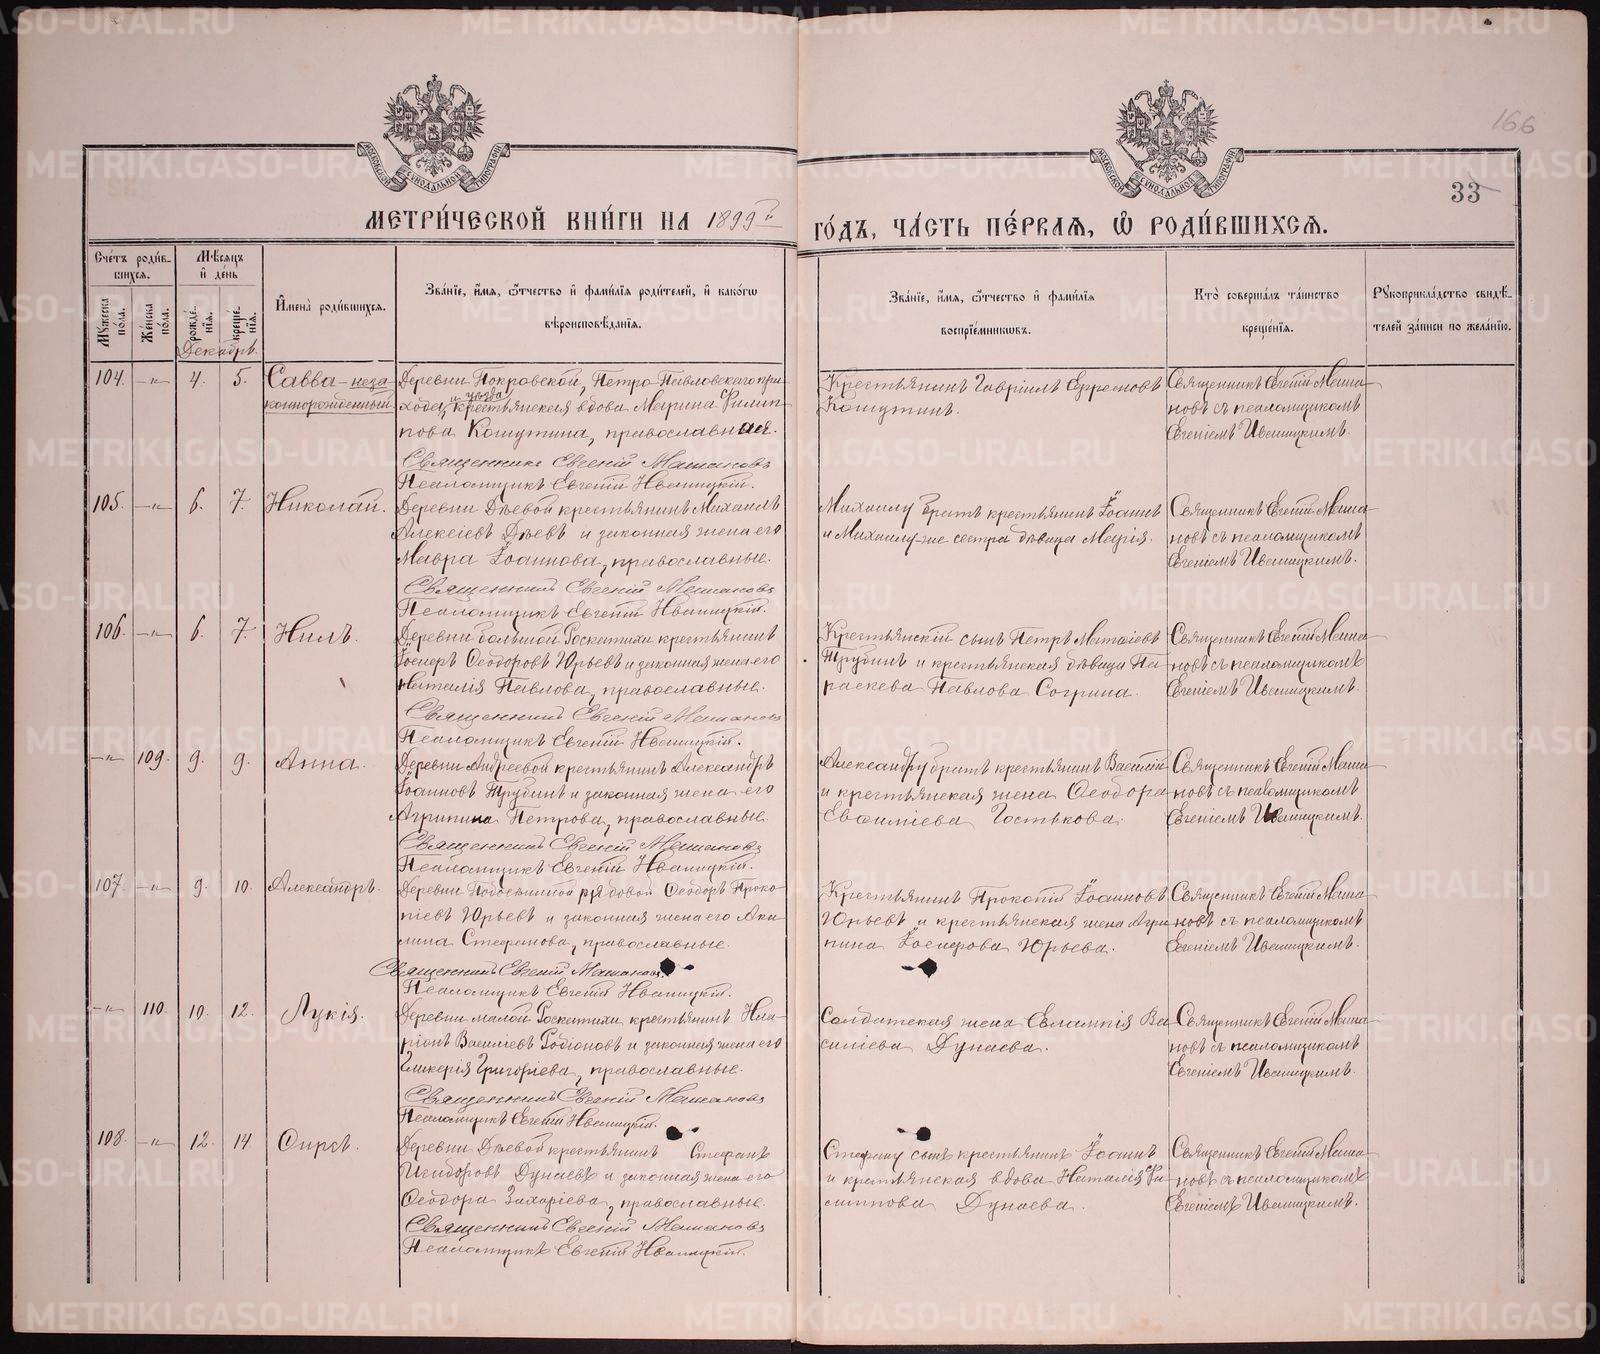 166
33
МЕТРИ́ЧЕСКОЙ КНИ́ГИ НА 1899й ГО́ДЪ, ЧА́СТЬ ПЕ́РВАѦ, Ѡ РОДИ́ВШИХСѦ.
Сче́тъ роди́вшихсѧ.
Мꙋжеска по́ла.
Же́нска по́ла.
Мѣ́сѧцъ и́ де́нь
рожде́нїѧ.
креще́нїѧ.
Декабрь.
И҆мена̀ роди́вшихсѧ.
Зва́нїе, и҆́мѧ, ѻ҆́тчество и҆ фами́лїѧ роди́телей, и҆ како́гѡ
вѣроисповѣ́данїѧ.
Зва́нїе, и҆́мѧ, ѻ҆́тчество и҆ фами́лїѧ
воспрїе́мникѡвъ.
Кто̀ соверша́лъ та́инство
креще́нїѧ.
Рꙋкоприкла́дство свидѣ́-
телей за́писи по жела́нїю.
104. -"- 4. 5. Савва - неза-
коннорожденный
Деревни Покровской, Петро-Павловскаго при-
и уѣзда
хода, крестьянская вдова Марина Филип-
пова Кошутина, православная.
Священникъ Евгений Машановъ
Псаломщикъ Евгений Ивалицкій.
Крестьянинъ Гавріилъ Ефремовъ
Кошутинъ.
Священникъ Евгеній Маша-
новъ съ псаломщикомъ
Евгеніемъ Ивалицкимъ.
105. -"- 6. 7. Николай.
Деревни Дѣевой крестьянинъ Михаилъ
Алексіевъ Дѣевъ и законная жена его
Мавра Іоаннова, православные.
Священникъ Евгеній Машановъ
Псаломщикъ Евгеній Ивалицкій.
Михаилу братъ крестьянинъ Іоаннъ
и Михаилу-же сестра дѣвица Марія.
Священникъ Евгеній Маша-
новъ съ псаломщикомъ
Евгеніемъ Ивалицкимъ.
106. -"- 6. 7. Нилъ.
Деревни большой Роскатихи крестьянинъ
Іосифъ Ѳеодоровъ Юрьевъ и законная жена его
Наталія Павлова, православные.
Священникъ Евгеній Машановъ
Псаломщикъ Евгеній Ивалицкій.
Крестьянскій сынъ Петръ Матѳіевъ
Трубинъ и крестьянская дѣвица Па-
раскева Павлова Согрина.
Священникъ Евгеній Маша-
новъ съ псаломщикомъ
Евгеніемъ Ивалицкимъ.
-"- 109. 9. 9. Анна.
Деревни Андреевой крестьянинъ Александръ
Іоанновъ Трубинъ и законная жена его
Агрипина Петрова, православные.
Священникъ Евгеній Машановъ
Псаломщикъ Евгеній Ивалицкій.
Александру братъ крестьянинъ Василій
и крестьянская жена Ѳеодора
Евѳиміева Гостькова.
Священникъ Евгеній Маша-
новъ съ псаломщикомъ
Евгеніемъ Ивалицкимъ.
107. -"- 9. 10. Александръ.
Деревни рядовой Ѳеодоръ Проко-
піевъ Юрьевъ и законная жена его Аки-
лина Стефанова, православные.
Священникъ Евгеній Машановъ
Псаломщикъ Евгеній Ивалицкій.
Крестьянинъ Прокопій Іоанновъ
Юрьевъ и крестьянская жена Агри-
пина Іосифова Юрьева.
Священникъ Евгеній Маша-
новъ съ псаломщикомъ
Евгеніемъ Ивалицкимъ.
-"- 110. 10. 12. Лукія.
Деревни малой Роскатихи крестьянинъ Ила-
ріонъ Василіевъ Родіоновъ и законная жена его
Гликерія Григоріева, православные.
Священникъ Евгеній Машановъ
Псаломщикъ Евгеній Ивалицкій.
Солдатская жена Евлампія Ва-
силіева Дунаева.
Священникъ Евгеній Маша-
новъ съ псаломщикомъ
Евгеніемъ Ивалицкимъ.
108. -"- 12. 14. Ѳирсъ.
Деревни Дѣевой крестьянинъ Стефанъ
Исидоровъ Дунаевъ и законная жена его
Ѳеодора Захаріева, православные.
Священникъ Евгеній Машановъ
Псаломщикъ Евгеній Ивалицкій.
Стефану сынъ крестьянинъ Іоаннъ
и крестьянская вдова Наталія Фи-
липпова Дунаева.
Священникъ Евгеній Маша-
новъ съ псаломщикомъ
Евгеніемъ Ивалицкимъ.
METRIKI.GASO-URAL.RU